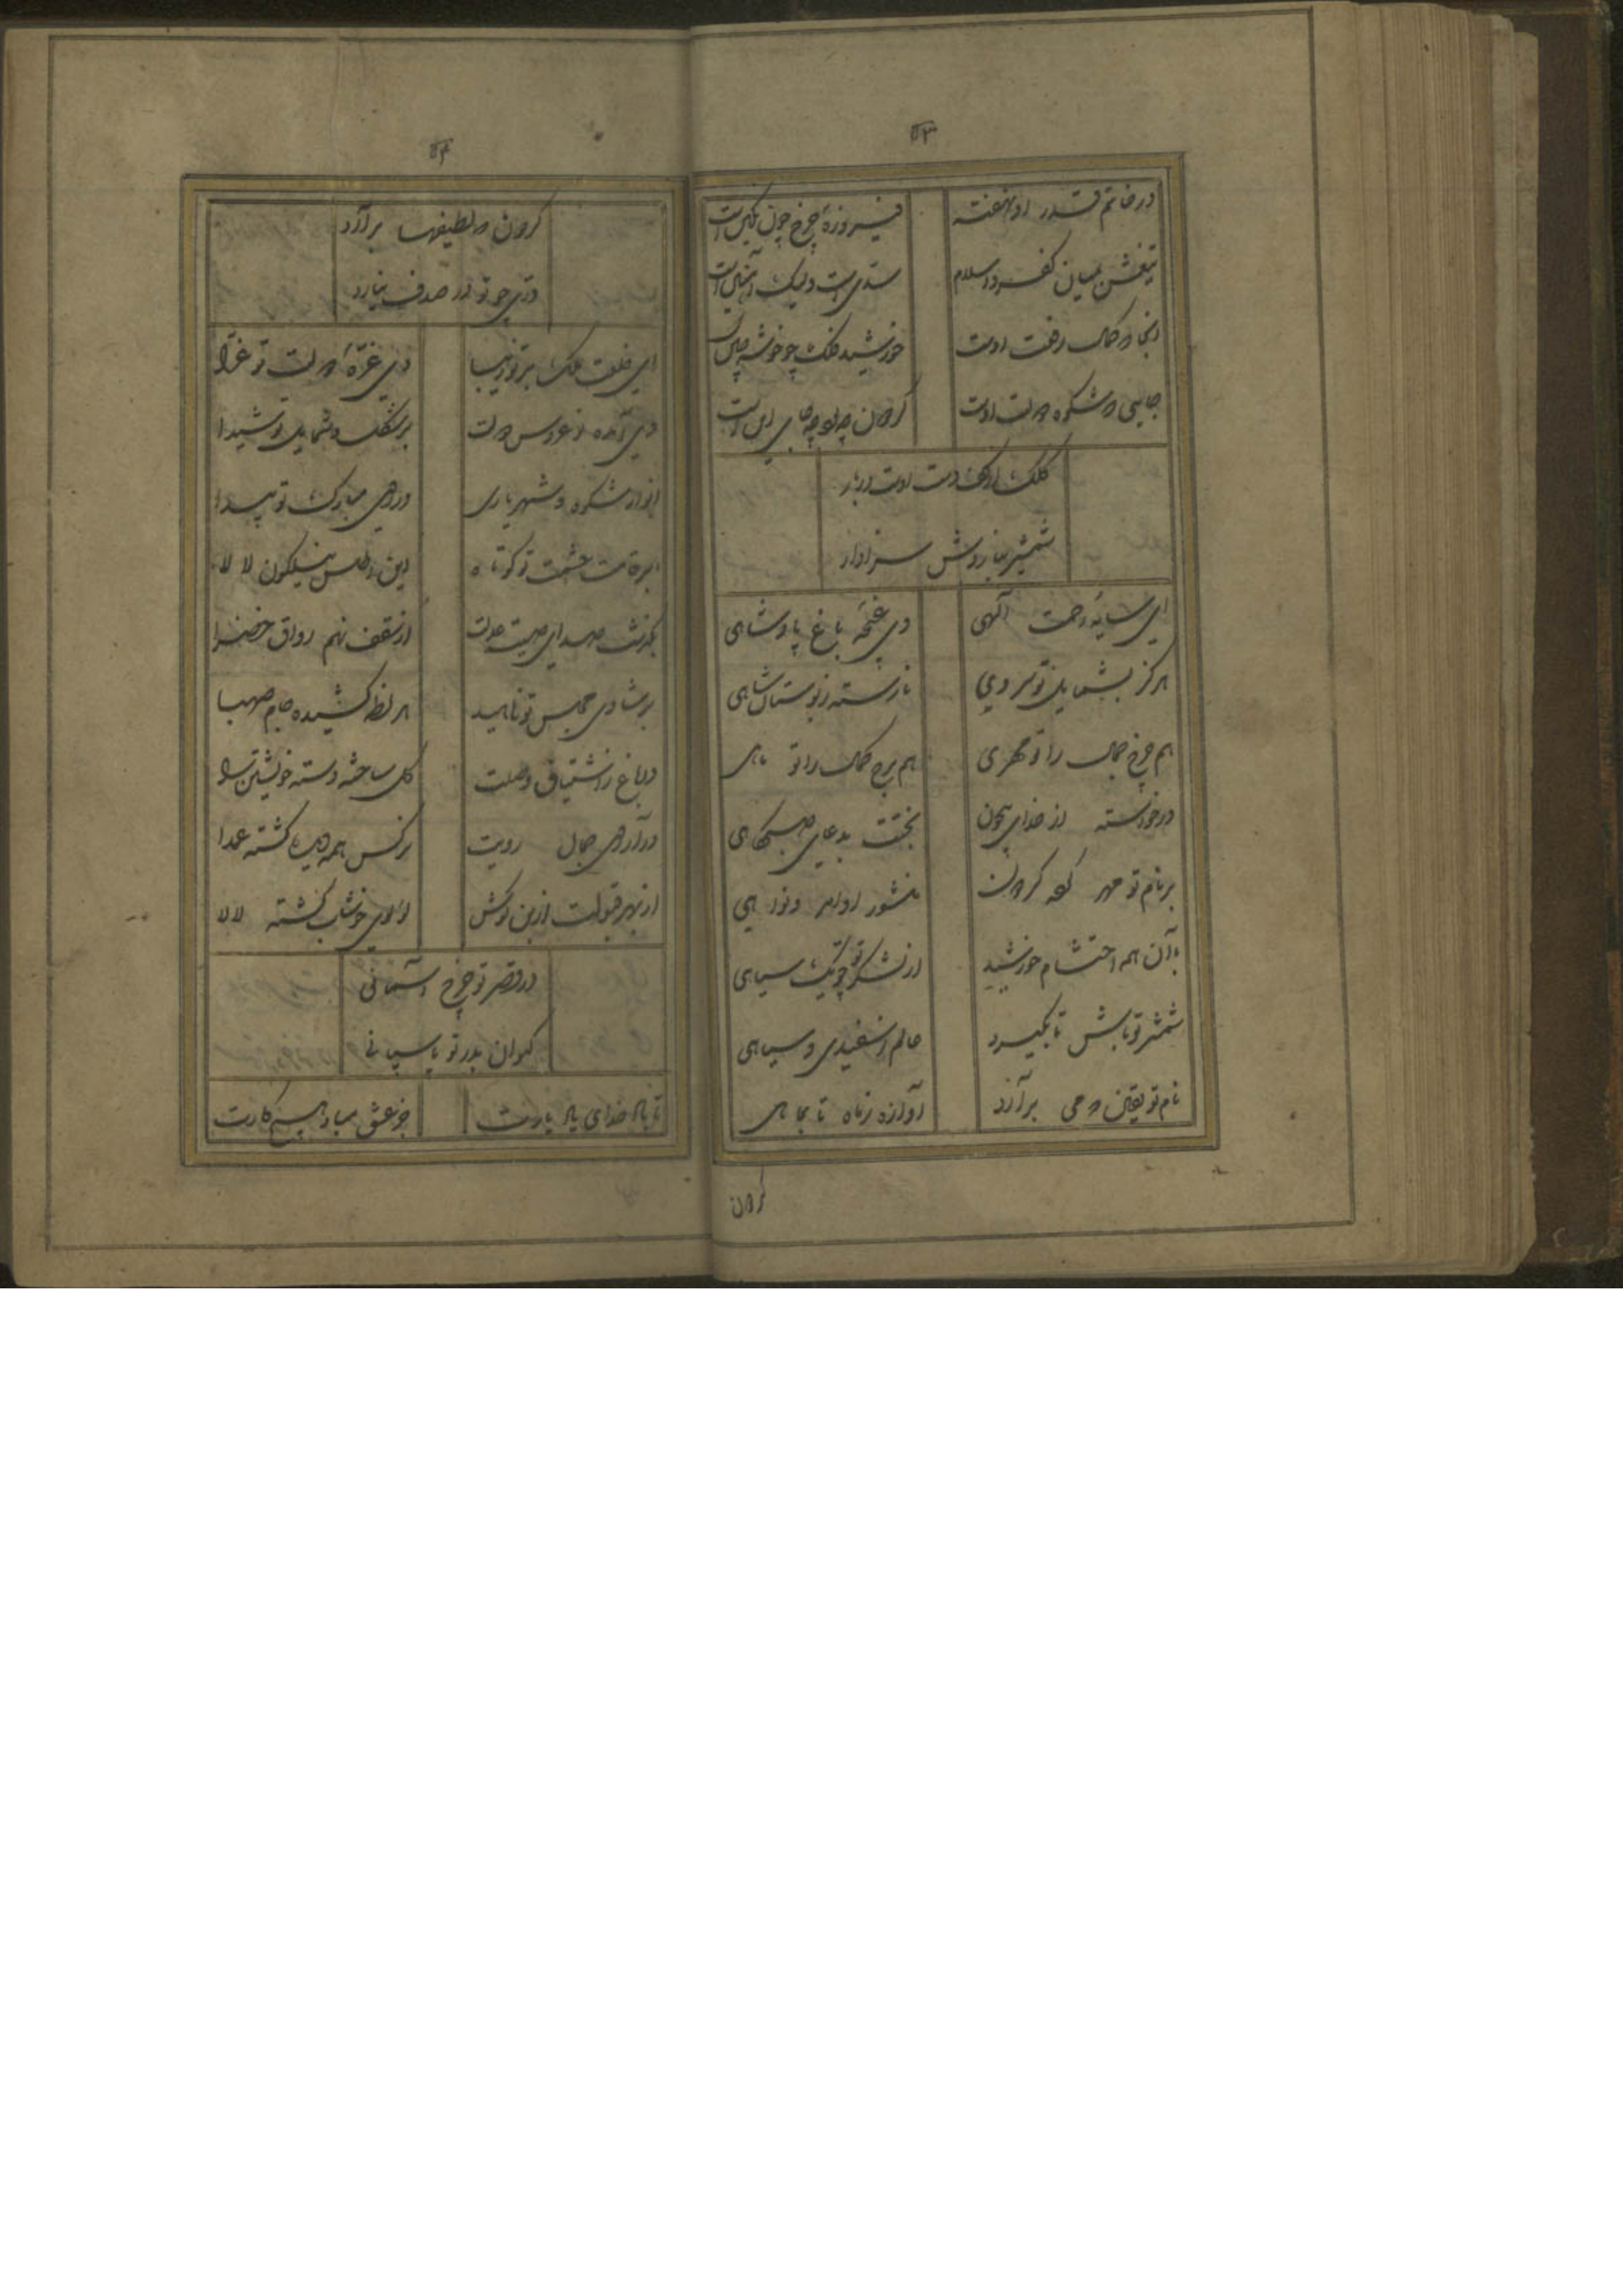 ۵۳
در خاتم قدر او نهفته
فیروزهٔ چرخ چون نگین است
تیغش بمیان کفر و اسلام
سدی است ولیک آهنین است
آنجا که کمال رفعت اوست
خورشید فلک چو خوشه چین
جایی که شکوه دولت اوست
گردون چه بود چه جای این است
کلک از کف دست اوست دربار
شمشیر ببازویش سزاوار
ای سایهٔ رحمت آلهی
وی غنچهٔ باغ پادشاهی
هرگز بشمایل تو سروی
نارسته ز بوستان شاهی
هم چرخ جمال را تو مهری
هم برج کمال را تو ماهی
درخواسته از خدای بیچون
بختت بدعای صبحگاهی
بر نام تو مهر کرده گردون
منشور اوامر و نواهی
با آن همه احتشام خورشید
از لشکر تو چو یک سپاهی
شمشیر تو باش تا بگیرد
عالم ز سفیدی و سیاهی
نام تو یقین که می برآرد
آوازه ز ماه تا بماهی
گردون
۵۴
گردون که لطیفها برآرد
دری چو تو در صدف نیارد
ای خلعت ملک بر تو زیبا
وی غرهٔ دولت تو غرا
وی آمده نوعروس دولت
بر شکل و شمایل تو شیدا
انوار شکوه و شهریاری
در روی مبارک تو پیدا
بر قامت حشمت تو کوتاه
این اطلس نیلگون لا لا
بگذشت صدای صیت عدلت
از سقف نهم رواق خضرا
بر شادی مجلس تو ناهید
هر لحظه کشیده جام صهبا
در باغ ز اشتیاق وصلت
گل ساخته دسته خویشتن را
در آرزوی جمال رویت
نرگس همه دیده گشته عمدا
از بهر قبولت از بن گوش
لؤلوی خوشاب گشته لالا
در قصر تو چرخ آستانی
کیوان بدر تو پاسبانی
تا باد خدای باد یارت
جز عشق مباد هیچ کارت